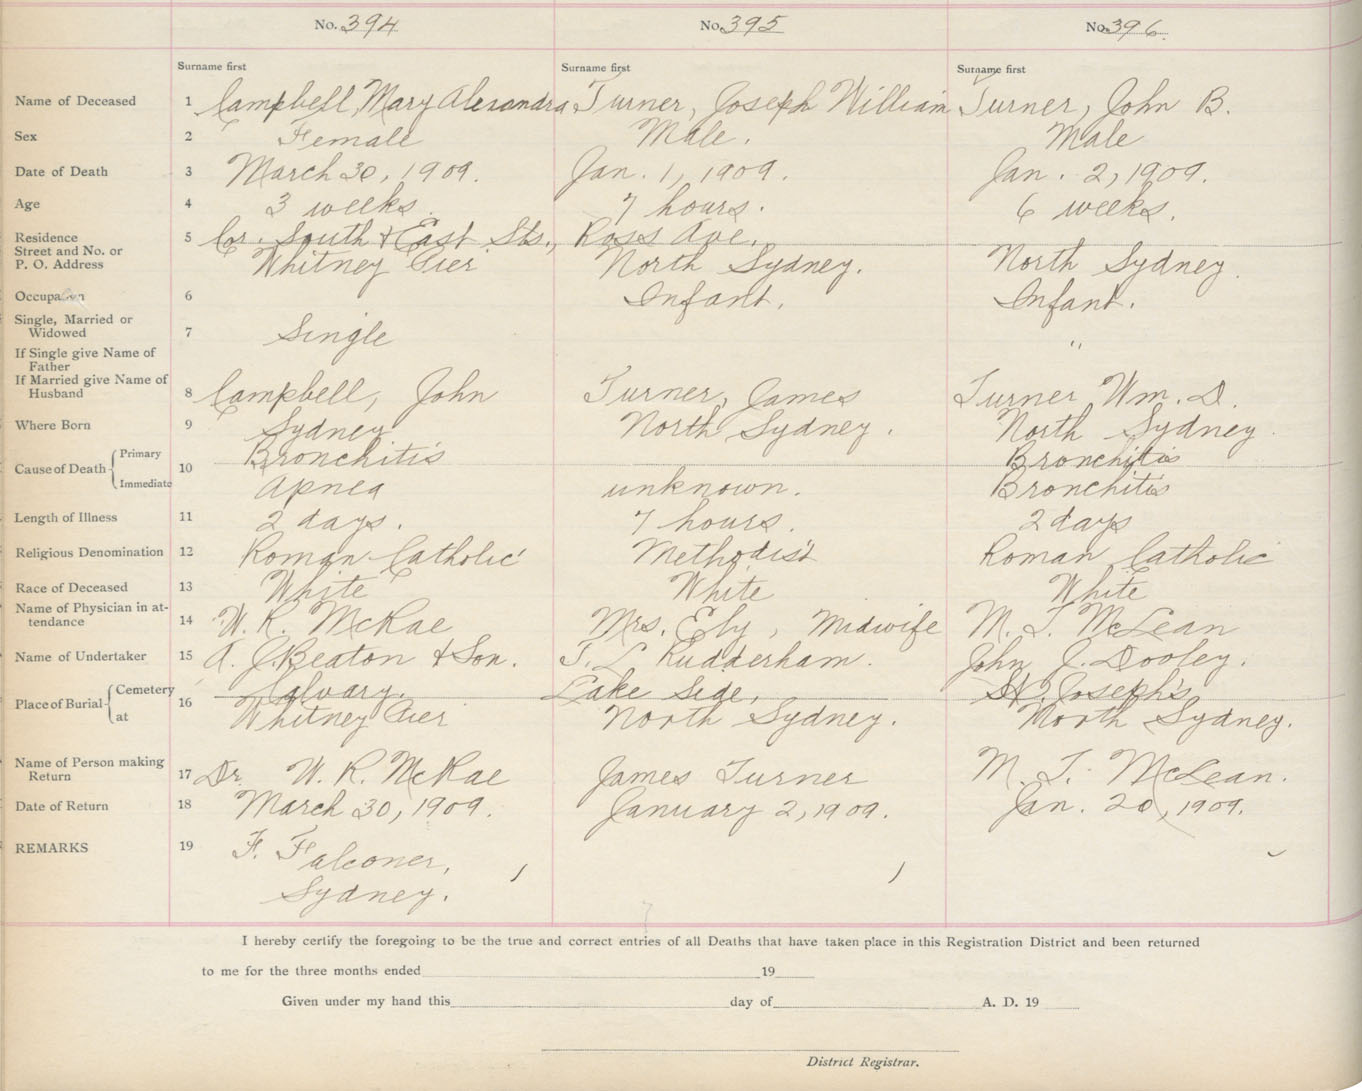 No. 394 No. 395 No. 396.
Surname first Surname first Surname first
Name of Deceased 1 Campbell, Mary Alexandra Turner, Joseph William Turner, John B.
Sex 2 Female Male. Male
Date of Death 3 March 30, 1909. Jan. 1, 1909. Jan. 2, 1909.
Age 4 3 weeks. 7 hours. 6 weeks.
Residence 5 Cr. South & East Sts., Ross Ave.
Street and No. or
P. O. Address Whitney Pier North Sydney. North Sydney.
Occupation 6 Infant. Infant.
Single, Married or
Widowed 7 Single "
If Single give Name of
Father
If Married give Name of
Husband 8 Campbell, John Turner, James Turner Wm. D.
Where Born 9 Sydney North Sydney. North Sydney.
Cause of Death Primary 10 Bronchitis Bronchitis
Immediate Apnea unknown. Bronchitis
Length of Illness 11 2 days. 7 hours. 2 days
Religious Denomination 12 Roman Catholic Methodist Roman Catholic
Race of Deceased 13 White White White
Name of Physician in at-
tendance 14 W. R. McRae Mrs. Ely, Midwife M. T. McLean
Name of Undertaker 15 A. J. Beaton & Son. T. L. Rudderham. John J. Dooley.
Place of Burial Cemetery 16 Calvary. Lake Side, St. Joseph's
at Whitney Pier North Sydney. North Sydney.
Name of Person making
Return 17 Dr. W. R. McRae James Turner M. T. McLean.
Date of Return 18 March 30, 1909. January 2, 1909. Jan. 20, 1909.
REMARKS 19 F. Falconer,
Sydney.
I hereby certify the foregoing to be the true and correct entries of all Deaths that have taken place in this Registration District and been returned
to me for the three months ended 19
Given under my hand this day of A. D. 19
District Registrar.